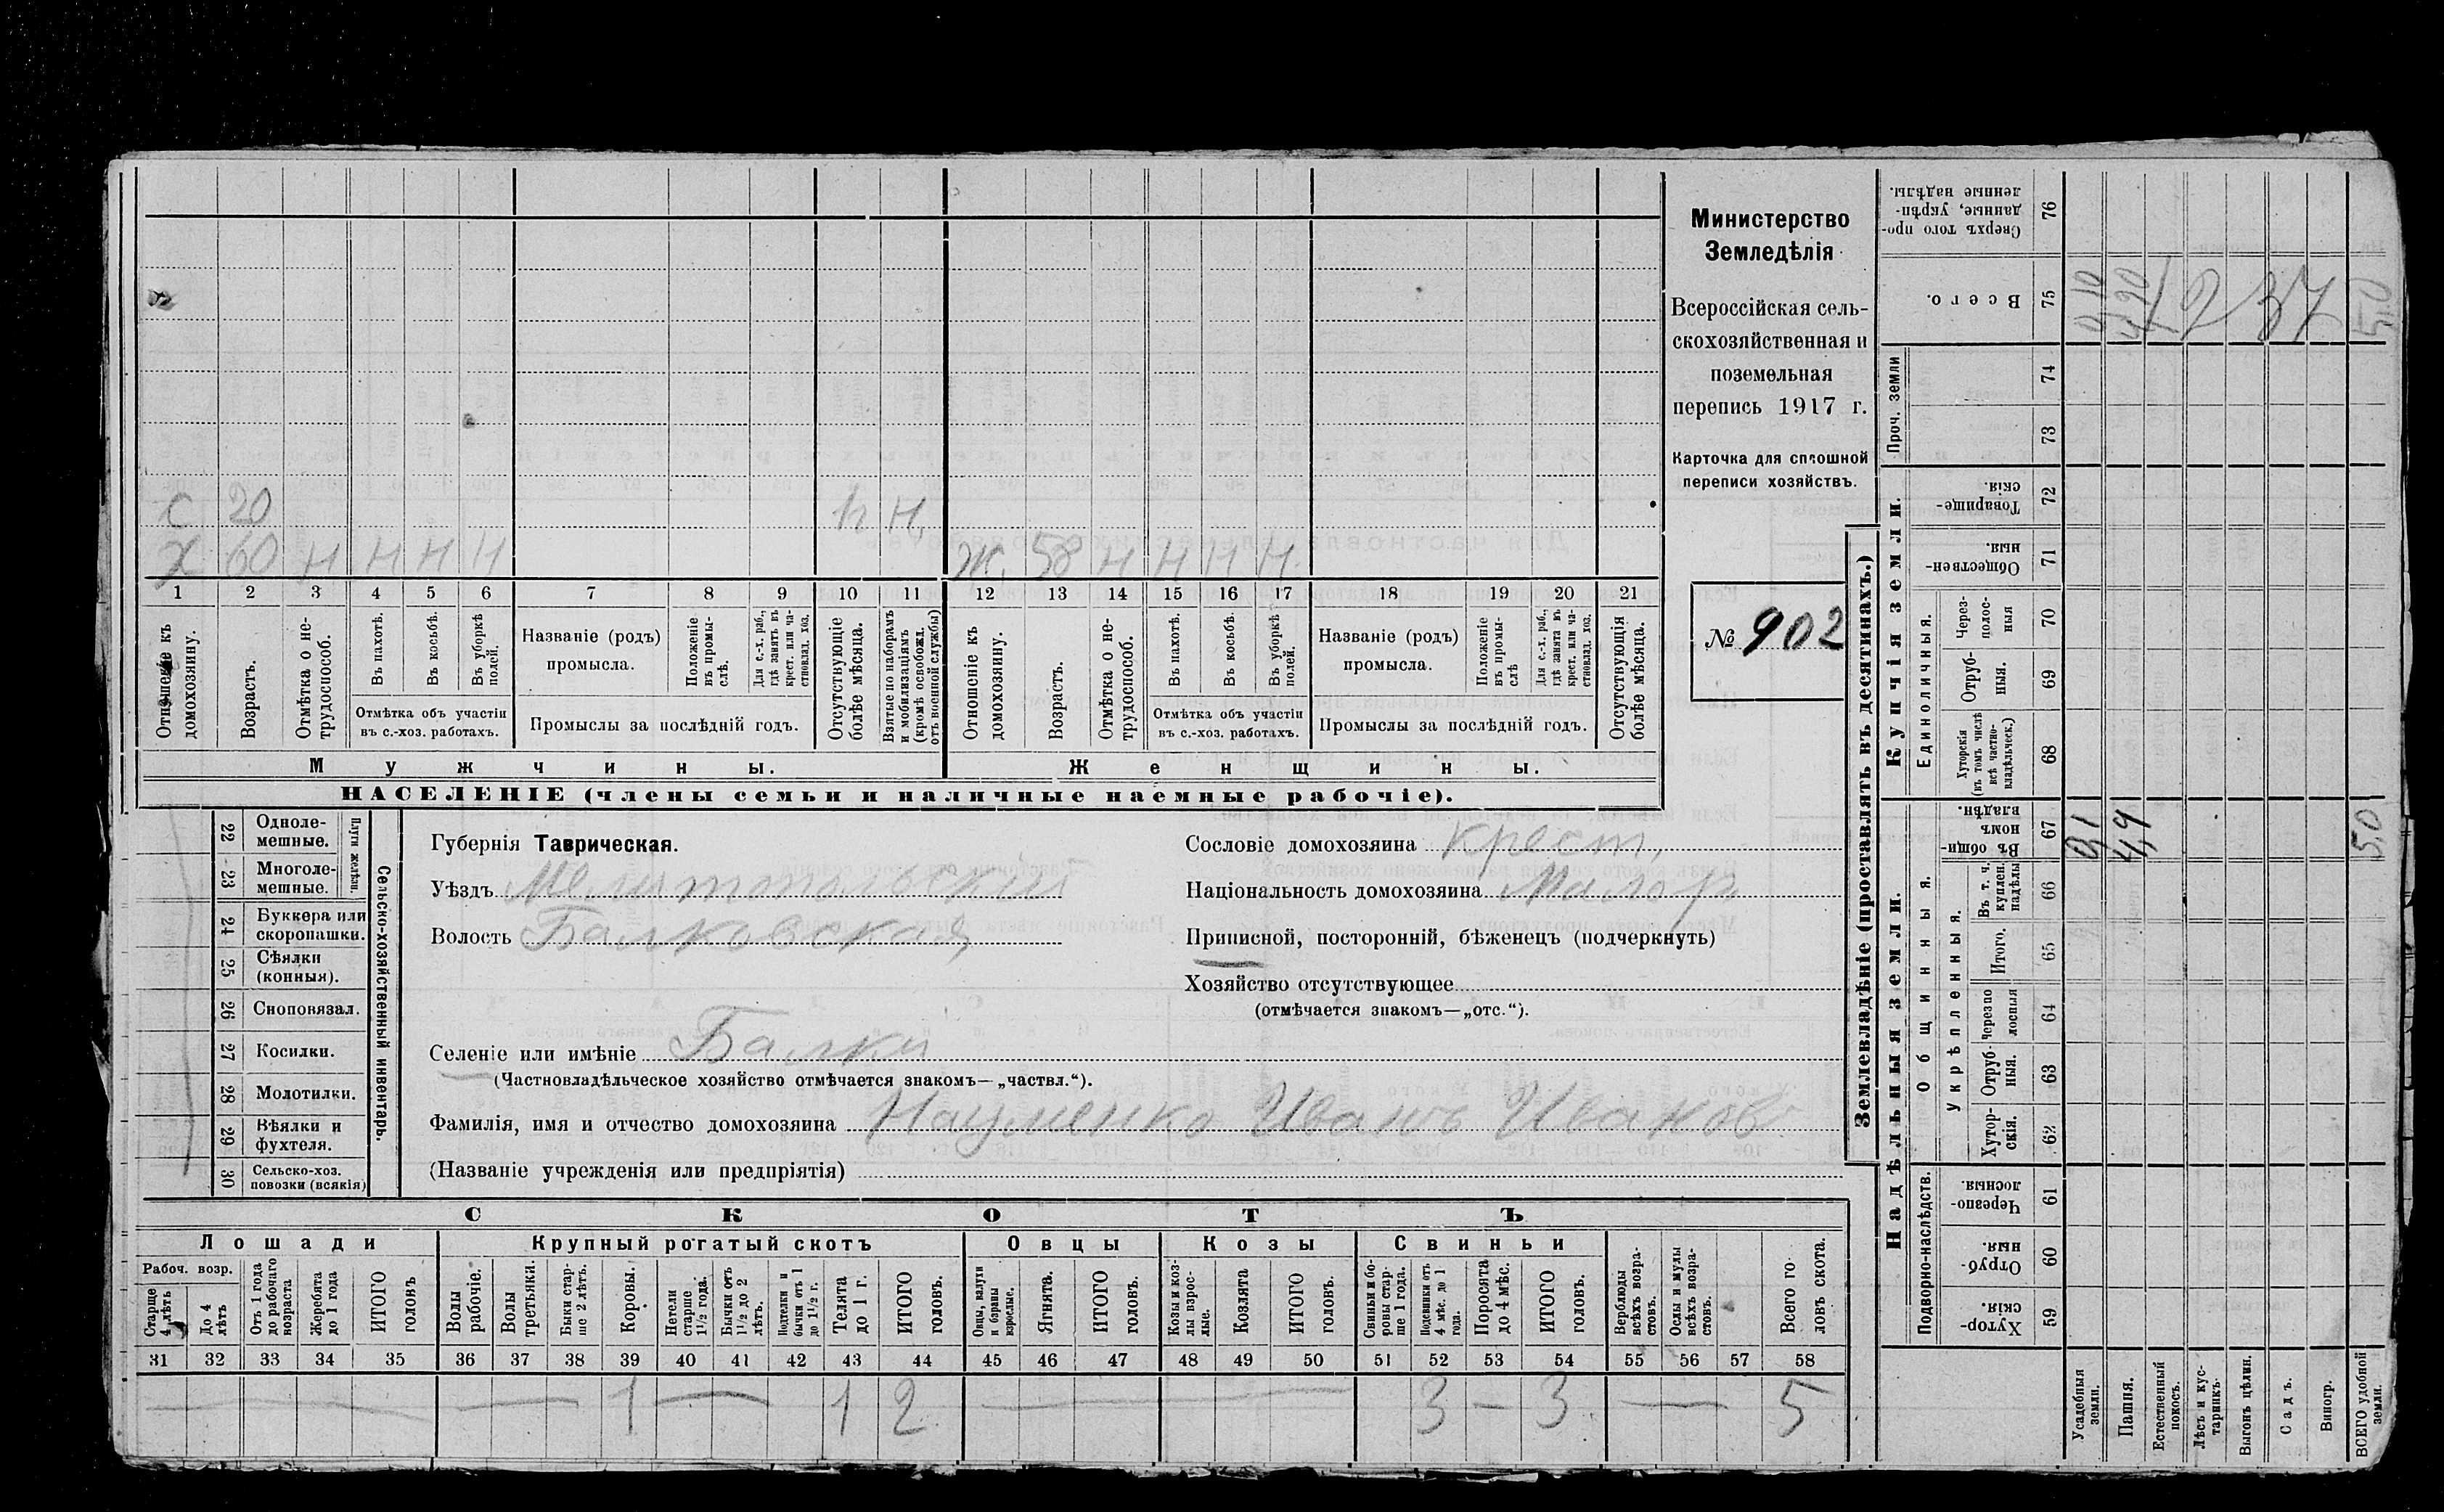 Министерство
Земледѣлія
Всероссійская сель-
скохозяйственная и
поземельная
перепись 1917 г.
Карточка для сплошной
переписи хозяйствъ.
№ 902
С 20 Н Н
Х 60 Н Н Н Н Ж. 58 Н Н Н Н.
1 2 3 4 5 6 7 8 9 10 11 12 13 14 15 16 17 18 19 20 21
Отношеніе къ домохозяину.
Возрастъ.
Отмѣтка о не-трудоспособ.
Въ пахотѣ.
Въ косьбѣ.
Въ уборкѣ полей.
Отмѣтка объ участіи
въ с.-хоз. работахъ.
Названіе (родъ)
промысла.
Положеніе въ промы-слѣ.
Для с.-х. раб., гдѣ занятъ въ крест. или ча-стновлад. хоз.
Промыслы за послѣдній годъ.
Отсутствующіе болѣе мѣсяца.
Взятые по наборамъ и мобилизаціямъ (кромѣ освобожд. отъ военной службы)
Отношеніе къ домохозяину.
Возрастъ.
Отмѣтка о не-трудоспособ.
Въ пахотѣ.
Въ косьбѣ.
Въ уборкѣ полей.
Отмѣтка объ участіи
въ с.-хоз. работахъ.
Названіе (родъ)
промысла.
Положеніе въ промы-слѣ
Для с.-х. раб., гдѣ занята въ крест. или ча-стновлад. хоз.
Промыслы за послѣдній годъ.
Отсутствующія болѣе мѣсяца.
Мужчины.
Женщины.
НАСЕЛЕНІЕ (члены семьи и наличные наемные рабочіе).
Сельско-хозяйственный инвентарь.
Плуги желѣзн.
22 Одноле-мешные.
23 Многоле-мешные.
24 Буккера или скоропашки.
25 Сѣялки (конныя).
26 Сноповязал.
27 Косилки.
28 Молотилки.
29 Вѣялки и фухтеля.
30 Сельско-хоз. повозки (всякія)
Губернія Таврическая.
Уѣздъ Мелитопольскій
Волость Балковская
Сословіе домохозяина крест.
Національность домохозяина Малор
Приписной, посторонній, бѣженецъ (подчеркнуть)
Хозяйство отсутствующее
(отмѣчается знакомъ—„отс.“).
Селеніе или имѣніе Балки
(Частновладѣльческое хозяйство отмѣчается знакомъ—„частвл.“).
Фамилія, имя и отчество домохозяина Науменко Иванъ Иванов
(Названіе учрежденія или предпріятія)
СКОТЪ
Лошади
Крупный рогатый скотъ
Овцы
Козы
Свиньи
Рабоч. возр.
Старше 4 лѣтъ
До 4 лѣтъ
Отъ 1 года до рабочаго возраста
Жеребята до 1 года
ИТОГО головъ
Волы рабочіе.
Волы третьяки.
Быки стар-ше 2 лѣтъ.
Коровы.
Нетели старше 1½ года.
Бычки отъ 1½ до 2 лѣтъ.
Подтелки и бычки отъ 1 до 1½ г.
Телята до 1 г.
ИТОГО головъ.
Овцы, валухи и бараны взрослые.
Ягнята.
ИТОГО головъ.
Козы и коз-лы взрос-лые.
Козлята
ИТОГО головъ.
Свиньи и бо-ровы стар-ше 1 года.
Подсвинки отъ 4 мѣс. до 1 года.
Поросята до 4 мѣс.
ИТОГО головъ.
Верблюды всѣхъ возра-стовъ.
Ослы и мулы всѣхъ возра-стовъ.
Всего го-ловъ скота.
31 32 33 34 35 36 37 38 39 40 41 42 43 44 45 46 47 48 49 50 51 52 53 54 55 56 57 58
1 1 2 3 — 3 — 5
Землевладѣніе (проставлять въ десятинахъ.)
Купчія земли.
Надѣльныя земли.
Проч. земли
Единоличныя.
Общинныя.
Укрѣпленныя.
Подворно-наслѣдств.
Сверхъ того про-данные, укрѣп-ленные надѣлы. 76
Всего. 75 0,10 4,90 5,0
74
73
Товарище-скія. 72
Обществен-ныя. 71
Через-полос-ныя 70
Отруб-ныя. 69
Хуторскія (въ томъ числѣ всѣ частно-владѣльческ.) 68
Въ общи-номъ владѣн. 67 0,1 4,9 5,0
Въ т. ч. куплен. надѣлы 66
Итого. 65
Черезпо-лосныя 64
Отруб-ныя. 63
Хутор-скія. 62
Черезпо-лосныя. 61
Отруб-ныя. 60
Хутор-скія. 59
Усадебныя земли.
Пашня.
Естественный покосъ.
Лѣсъ и кус-тарникъ.
Выгонъ цѣлин.
Садъ.
Виногр.
ВСЕГО удобной земли.